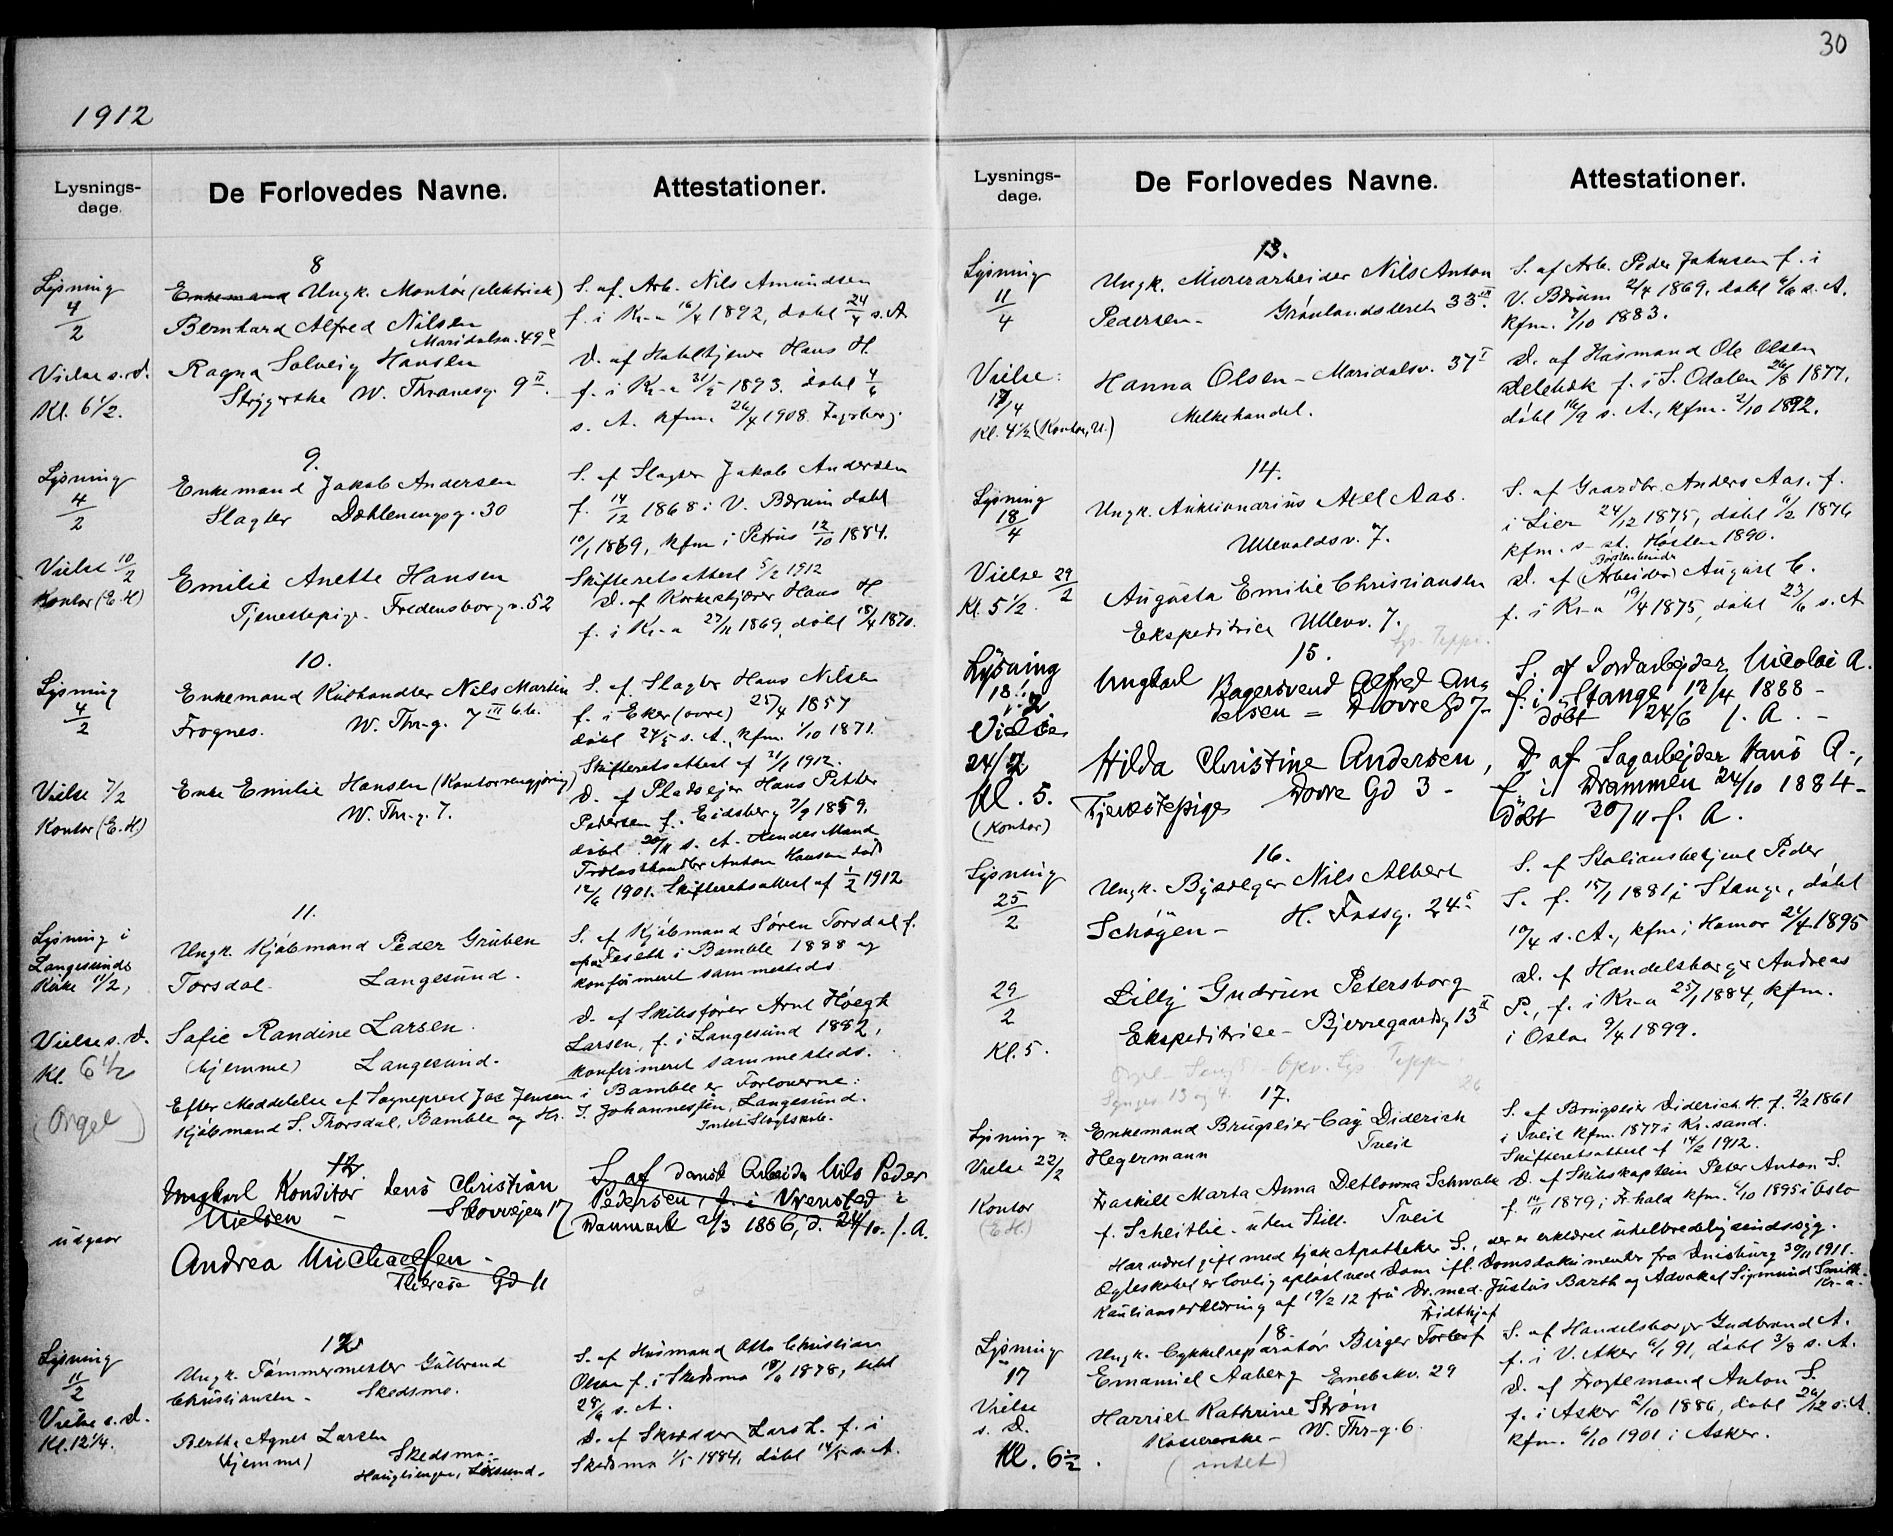 30
1912
Lysnings-
dage.
De Forlovedes Navne.
Attestationer.
8
Lysning
4/2
Vielse s. d.
Kl. 6½.
Enkemand Ungk. Montør (elektrisk)
Bernhard Alfred Nilsen
Maridalsv. 49
Ragna Solveig Hansen
Strygerske W. Thranesg. 9 II
S. af Arb. Nils Amundsen
f. i Kr-a 16/4 1892, døbt 24/4 s. A
D. af Hans H.
f. i Kr-a 31/5 1893, døbt
s. A. kfm. 26/4 1908 Fagerborg.
9.
Lysning
4/2
Vielse 10/2
Kontor (E. H)
Enkemand Jakob Andersen
Slagter Dælenengsg. 30
Emilie Anette Hansen
Tjenestepige. Fredensborgv. 52
S. af Slagter Jakob Andersen
f. 14/12 1868 i V. Bærum døbt
10/1 1869, kfm i Petrus 12/10 1884.
Skifteretsattest 5/2 1912
D. af Hans H
f. i Kr-a 27/11 1869, døbt 18/4 1870.
10.
Lysning
4/2
Vielse 7/2
Kontor (E. H)
Enkemand Kulhandler Nils Martin
Frognes. W. Thr-g. 7 III
Enke Emilie Hansen (Kontorrengjøring)
W. Thr-g. 7.
S. af Slagter Hans Nilsen
f. i Eker (øvre) 25/4 1857
døbt 24/5 s. A., kfm. 1/10 1871.
Skifteretsattest af 31/1 1912.
D. af Pladsejer Hans Petter
Pedersen f. Eidsberg 7/9 1859.
døbt 20/11 s. A. Hendes Mand
Trælasthandler Anton Hansen død
12/6 1901. Skifteretsattest af ½ 1912
11.
Lysning i
Langesunds
Kirke 11/2,
Vielse s. d.
Kl. 6½
(Orgel)
Ungk. Kjøbmand Peder Gruben
Torsdal. Langesund.
Sofie Randine Larsen.
(hjemme) Langesund.
S. af Kjøbmand Søren Torsdal f.
i Bamble 1888 og
konfirmeret sammesteds
D. af Skibsfører Arnt Høegh
Larsen, f. i Langesund 1882,
konfirmeret sammesteds.
Efter Meddelelse af Sogneprest Jac Jensen i Bamble er Forloverne:
Kjøbmand S. Thorsdal, Bamble og Hr. J. Johannessen, Langesund.
Intet Slægtskab.
12.
udgaar
Ungkarl Konditor Jens Christian
Nielsen - Skovvejen 17
Andrea Michaelsen -
Therese Gd 11
S. af dansk Arbeider Nils Peder
Pedersen, f. i Vrensted i
Danmark 2/3 1886, d. 24/10. s. A.
12
Lysning
11/2
Vielse s. d.
Kl. 12¼.
Ungk. Tømmermester Gulbrand
Christiansen - Skedsmo.
Berthe Agnes Larsen
(hjemme) Skedsmo.
S. af Husmand Otto Christian
Olsen f. i Skedsmo 18/8 1878, døbt
s. A.
D. af Skrædder Lars L. f. i
Skedsmo 1/5 1884, døbt 14/5 s. A.
Lysnings-
dage.
De Forlovedes Navne.
Attestationer.
13.
Lysning
11/4
Vielse:
17/4
Kl. 4½ (Kontor, U.)
Ungk. Murerarbeider Nils Anton
Pedersen - Grønlandsleret 33 III
Hanna Olsen - Maridalsv. 37 I
Melkehandel.
S. af Arb. Peder Johnsen f. i
V. Bærum 2/4 1869, døbt 6/6 s. A.
kfm. 7/10 1883.
D. af Husmand Ole Olsen
f. i S. Odalen 26/8 1877,
døbt 16/9 s. A., kfm. 2/10 1892.
14.
Lysning
18/4
Vielse 29/2
Kl. 5½.
Ungk. Auktionarius Axel Aas.
Ullevoldsv. 7.
Augusta Emilie Christiansen
Ekspeditrice Ullevv. 7.
S. af Gaardbr. Anders Aas. f.
i Lier 24/12 1875, døbt 6/2 1876
kfm. s. st. Høsten 1890.
Børstenbinder
D. af (Arbeider) August C.
f. i Kr-a 19/4 1875, døbt 23/6 s. A
15.
Lysning
18/2
Vielse
24/2
Kl. 5.
(Kontor)
Ungkarl Bagersvend Alfred Ami
delsen = Dovre Gd 7-
Hilda Christine Andersen,
Tjenestepige Dovre Gd 3 -
S. af Jordarbejder Nicolai A.
f. i Stange 12/4 1888 -
døbt 24/6 s. A. -
D. af Sagarbejder Hans A.,
f. i Drammen 24/10 1884 -
døbt 30/11 s. A.
16.
Lysning
25/2
29/2
Kl. 5.
Ungk. Bysælger Nils Albert
Schøyen - H. Fossg. 24
Lilly Gudrun Petersborg
Ekspeditrice - Bjerregaardsg 13 II
S. af Stationsbetjent Peder
S. f. 15/1 1881 i Stange, døbt
10/4 s. A., kfm i Hamar 21/4 1895
D. af Handelsborger Andreas
P., f. i Kr-a 25/1 1884, kfm.
i Oslo 9/4 1899.
17.
Lysning
Vielse 22/2
Kontor
(E H.)
Enkemand Brugseier Cay Diderich
Hegermann Tveit
Fraskilt Marta Anna Detlowna Schwalb
f. Scheitlie - uden Still. Tveit
S. af Brugseier Diderich H. f. 3/2 1861
i Tveit kfm. 1877 i Kr.sand.
Skifteretsattest af 14/2 1912.
D. af Skibskaptein Peter Anton S.
f. 14/11 1879 i Fr.hald kfm. 6/10 1895 i Oslo
Har været gift med tysk Apotheker S., der er erklæret uhelbredelig sindssyg.
Ægteskabet er lovlig opløst ved Dom ifl. Domsdokumenter fra Duisburg 30/11 1911.
Kautionserklæring af 19/2 12 fra Dr. med. Justus Barth og Advokat Sigmund Smith
Kr-a.
18.
Lysning
17
Vielse
s. D.
Kl. 6½.
Fridthjof
Ungk. Cykkelreparatør Birger Torleif
Emanuel Aaberg Enebakv. 29
Harriet Kathrine Strøm
Kassererske - W. Thr-g. 6.
(intet)
S. af Handelsborger Gudbrand A.
f. i V. Aker 6/1 91, døbt 3/8 s. A.
D. af Fragtemand Anton S.
f. i Asker 2/10 1886, døbt 26/12 s. A.
kfm. 6/10 1901 i Asker.